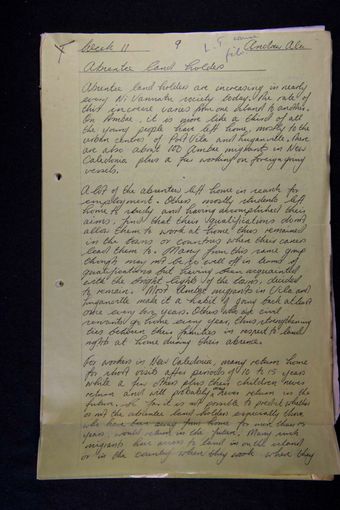 Week 11 9 L.T. file Andrew Ala
Absentee land holders
Absentee land holders are increasing in nearly
every Ni Vanuatu society today. The rate of
this increase varies from one island to another.
On Ambae, it is more like a third of all
the young people have left home, mostly to the
urban centres of Port Vila and Luganville. There
are also about 100 Ambae migrants in New
Caledonia plus a few working on foreign going
vessels.
A lot of the absentees left home in search for
employment. Others, mostly students left
home to study and having accomplished their
aims, find that their qualifications don't
allow them to work at home thus remained
in the towns or countries where their careers
lead them to. Many from this same group
though may not be so well off in terms of
qualifications but having been acquainted
with the bright lights of the towns, decided
to remain. Most Ambae migrants in Vila and
Luganville make it a habit of going back at least
once every two years. Others who are civil
servants go home every year, thus strengthening
ties between their families in respect to land
rights at home during their absence.
For workers in New Caledonia, many return home
for short visits after periods of 10 to 15 years
while a few others plus their children never
return and will probably never return in the
future. So far it is not possible to predict whether
or not the absentee land holders especially those
who have been away from home for more than 15
years, would return in the future. Many such
migrants have access to land in another island
or in the country where they work where they